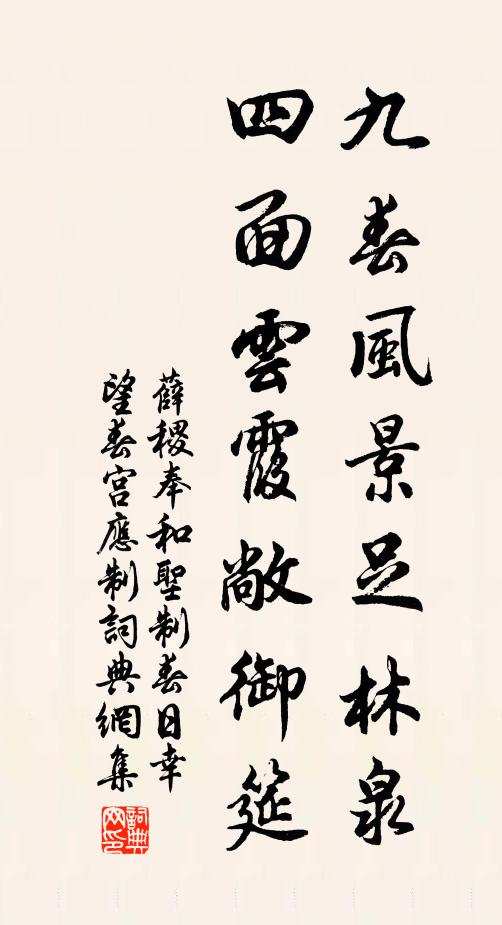 九春風景足林泉
四面雲霞敞御筵
薛稷奉和聖制春日幸
望春宮應制詞典網集
詞典
网印